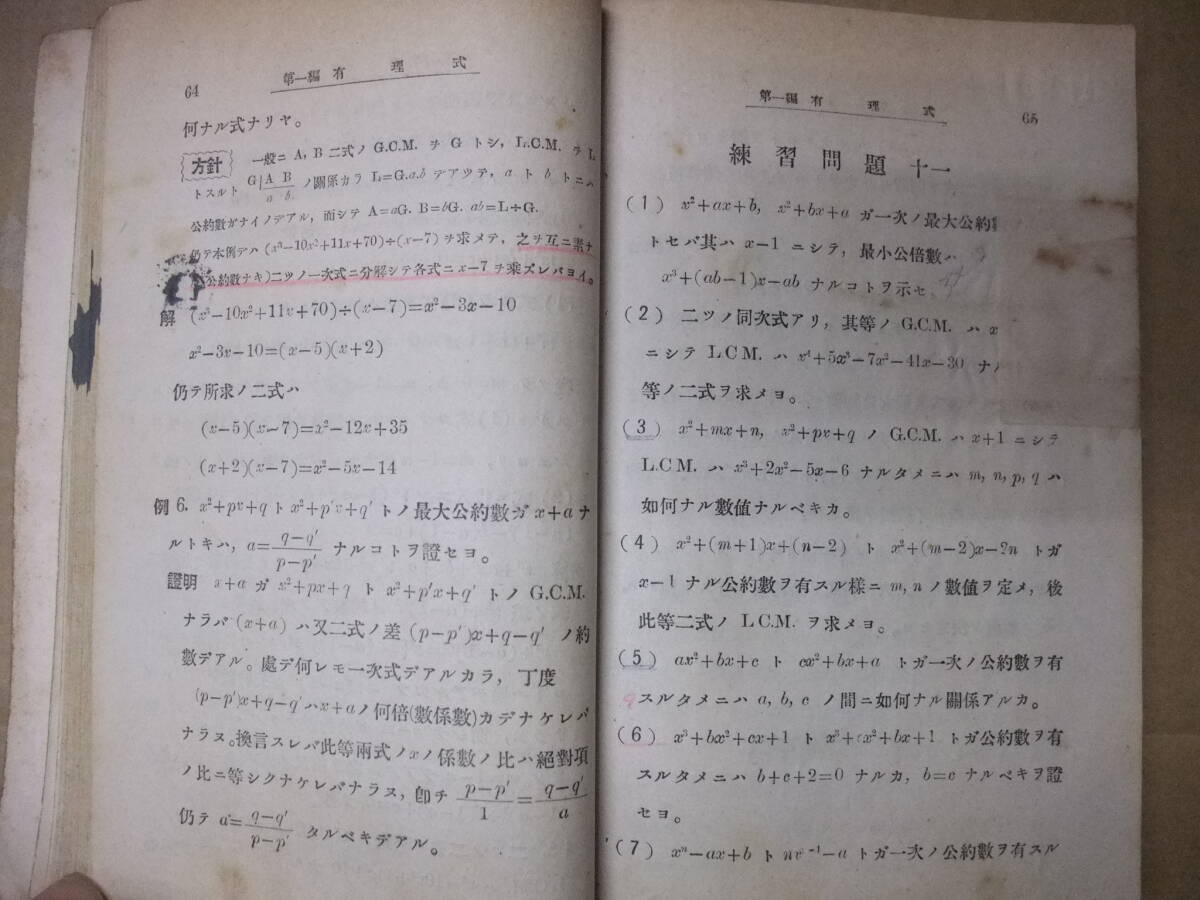 64
第一編 有理式
何ナル式ナリヤ。
方針 一般ニ A, B 二式ノ G.C.M. ヲ G トシ, L.C.M. ヲ L
トスルト G|A B / a b ノ關係カラ L=G.a.b デアツテ, a ト b トニハ
公約數ガナイノデアル, 而シテ A=aG. B=bG. ab=L÷G.
仍テ本例デハ (x³−10x²+11x+70)÷(x−7) ヲ求メテ, 之ヲ互ニ素ナ
公約數ナキ)二ツノ一次式ニ分解シテ各式ニ x−7 ヲ乘ズレバヨイ。
解 (x³−10x²+11x+70)÷(x−7)=x²−3x−10
x²−3x−10=(x−5)(x+2)
仍テ所求ノ二式ハ
(x−5)(x−7)=x²−12x+35
(x+2)(x−7)=x²−5x−14
例 6. x²+px+q ト x²+p′x+q′ トノ最大公約數ガ x+a ナ
ルトキハ, a=(q−q′)/(p−p′) ナルコトヲ證セヨ。
證明 x+a ガ x²+px+q ト x²+p′x+q′ トノ G.C.M.
ナラバ (x+a) ハ又二式ノ差 (p−p′)x+q−q′ ノ約
數デアル。處デ何レモ一次式デアルカラ, 丁度
(p−p′)x+q−q′ ハ x+a ノ何倍(數係數)カデナケレバ
ナラヌ。換言スレバ此等兩式ノ x ノ係數ノ比ハ絕對項
ノ比ニ等シクナケレバナラヌ, 卽チ (p−p′)/1=(q−q′)/a
仍テ a=(q−q′)/(p−p′) タルベキデアル。
第一編 有理式
65
練習問題 十一
(1) x²+ax+b, x²+bx+a ガ一次ノ最大公約
トセバ其ハ x−1 ニシテ, 最小公倍數ハ
x³+(ab−1)x−ab ナルコトヲ示セ
(2) 二ツノ同次式アリ, 其等ノ G.C.M. ハ x
ニシテ L.C.M. ハ x⁴+5x³−7x²−41x−30 ナ
等ノ二式ヲ求メヨ。
(3) x²+mx+n, x²+px+q ノ G.C.M. ハ x+1 ニシテ
L.C.M. ハ x³+2x²−5x−6 ナルタメニハ m, n, p, q ハ
如何ナル數値ナルベキカ。
(4) x²+(m+1)x+(n−2) ト x²+(m−2)x−2n トガ
x−1 ナル公約數ヲ有スル樣ニ m, n ノ數値ヲ定メ, 後
此等二式ノ L.C.M. ヲ求メヨ。
(5) ax²+bx+c ト cx²+bx+a トガ一次ノ公約數ヲ有
スルタメニハ a, b, c ノ間ニ如何ナル關係アルカ。
(6) x³+bx²+cx+1 ト x³+cx²+bx+1 トガ公約數ヲ有
スルタメニハ b+c+2=0 ナルカ, b=c ナルベキヲ證
セヨ。
(7) xⁿ−ax+b ト nxⁿ⁻¹−a トガ一次ノ公約數ヲ有スル